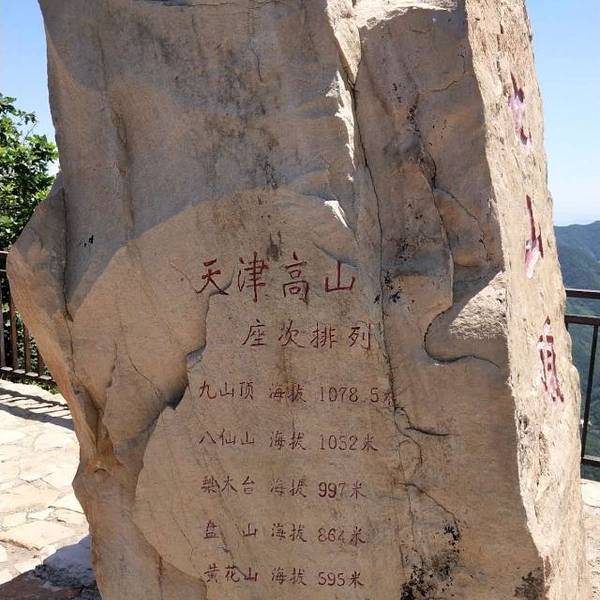 天津高山
座次排列
九山顶 海拔 1078.5米
八仙山 海拔 1052米
梨木台 海拔 997米
盘 山 海拔 864米
黄花山 海拔 595米
九山顶